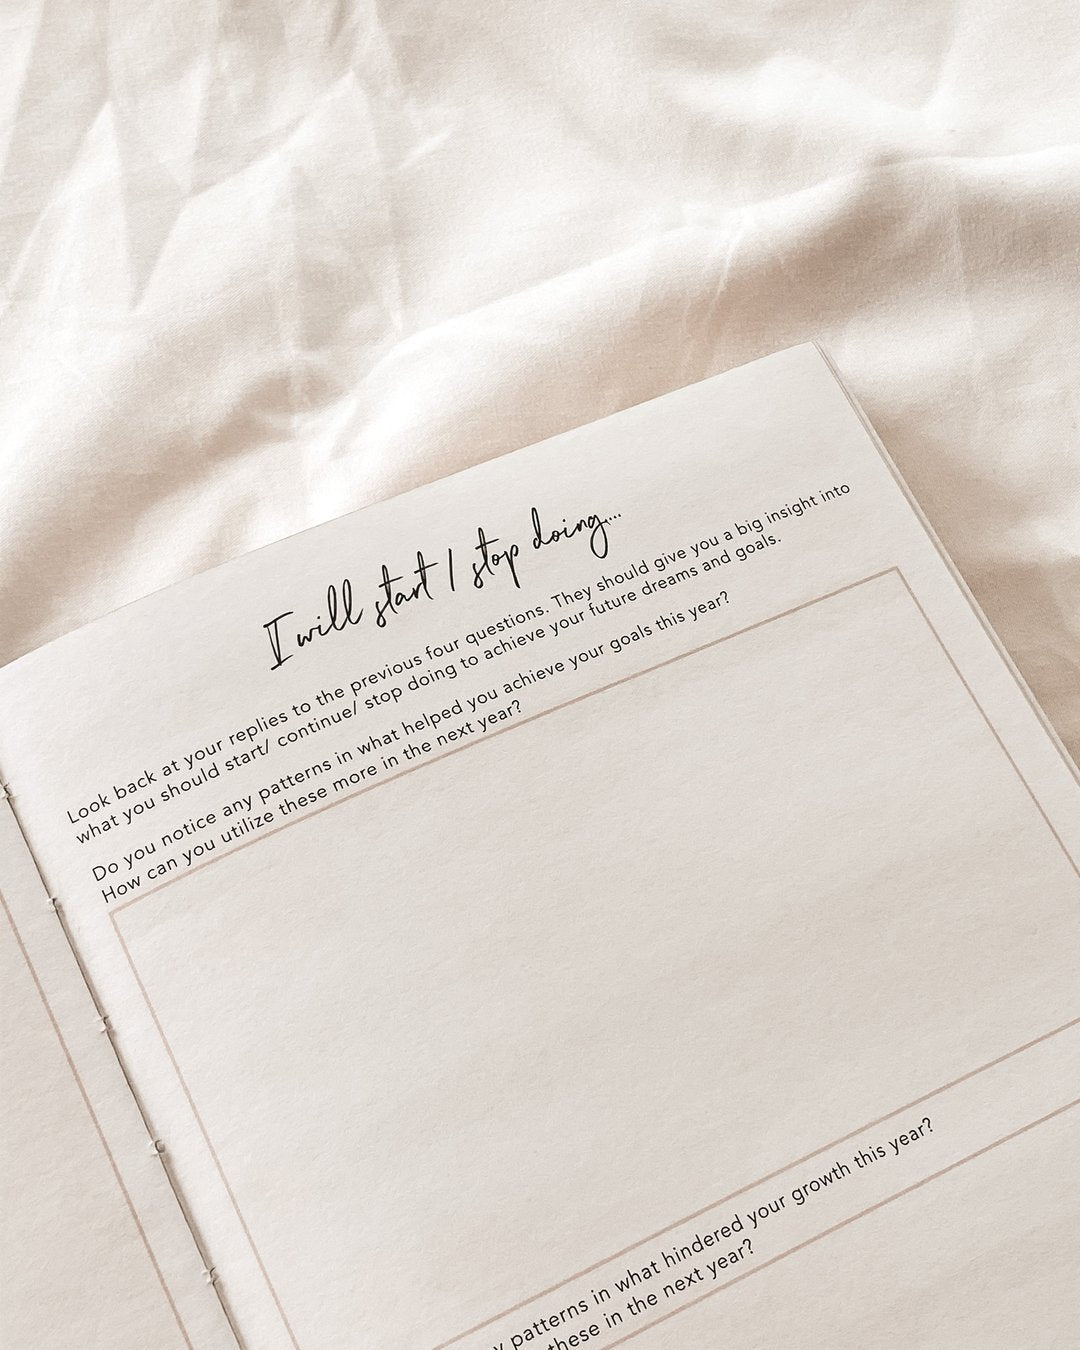 I will start / stop doing...
Look back at your replies to the previous four questions. They should give you a big insight into
what you should start/ continue/ stop doing to achieve your future dreams and goals.
Do you notice any patterns in what helped you achieve your goals this year?
How can you utilize these more in the next year?
patterns in what hindered your growth this year?
these in the next year?